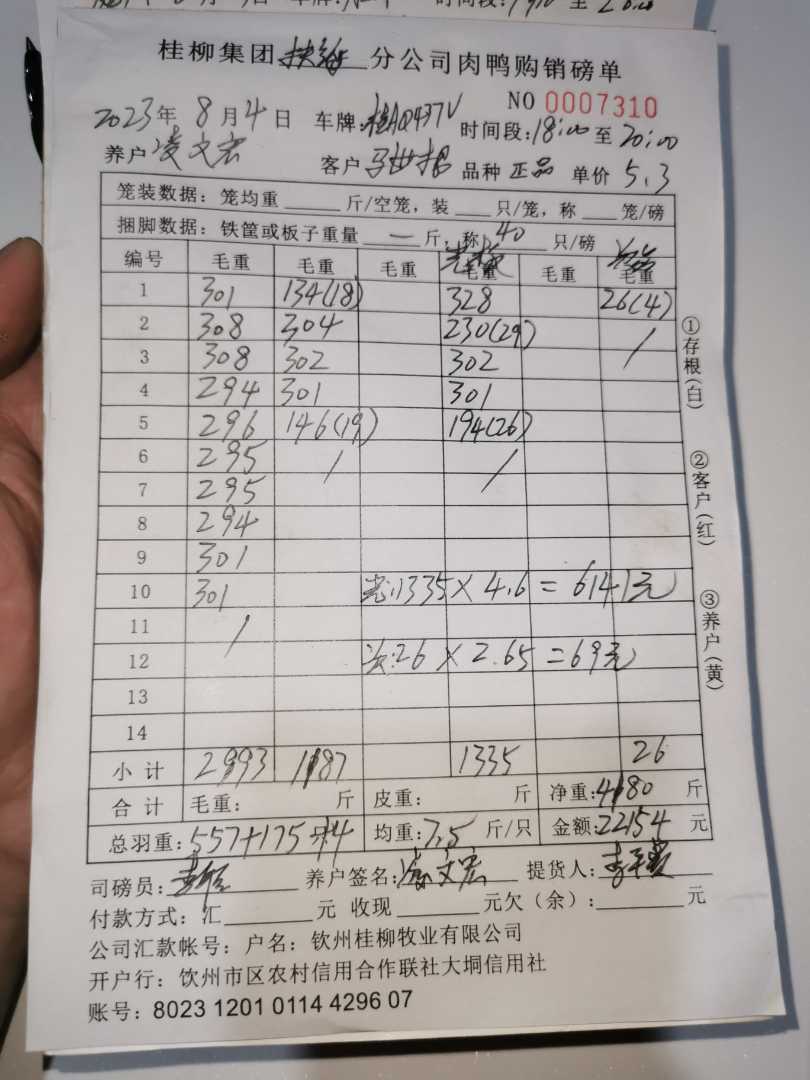 桂柳集团 扶绥 分公司肉鸭购销磅单
NO 0007310
2023年 8月4日 车牌: 时间段:18:00至20:00
养户 凌文宏 客户 品种 正品 单价 5.3
笼装数据: 笼均重 斤/空笼, 装 只/笼, 称 笼/磅
捆脚数据: 铁筐或板子重量 一 斤, 称 40 只/磅
编号 毛重 毛重 毛重 毛重 毛重 毛重
1 301 134(18) 328 26(4)
2 308 304 230(29) /
3 308 302 302
4 294 301 301
5 296 146(19) 194(26)
6 295 / /
7 295
8 294
9 301
10 301 :1335 × 4.6 = 6141元
11 /
12 次:26 × 2.65 = 69元
13
14
小计 2993 1187 1335 26
合计 毛重: 斤 皮重: 斤 净重:4180 斤
总羽重:557+175+4 均重:7.5 斤/只 金额:22154 元
司磅员: 养户签名:凌文宏 提货人:
付款方式: 汇 元 收现 元欠(余): 元
公司汇款帐号: 户名: 钦州桂柳牧业有限公司
开户行: 饮州市区农村信用合作联社大垌信用社
账号: 8023 1201 0114 4296 07
①存根(白)
②客户(红)
③养户(黄)